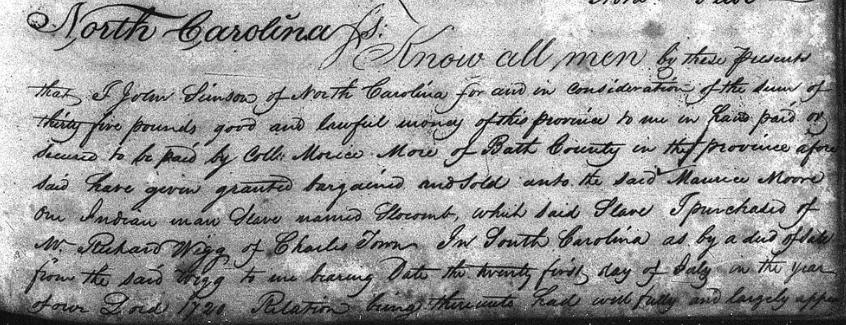 North Carolina ss:
Know all men by these presents
that I John Simson of North Carolina for and in consideration of the sum of
thirty five pounds good and lawful money of this province to me in hand paid or
secured to be paid by Coll: Morice More of Bath County in the province afore
said have given granted bargained and sold unto the said Maurice Moore
one Indian man Slave named Slocomb, which said Slave I purchased of
Mr Richard Wigg of Charles Town In South Carolina as by a deed of Sale
from the said Wigg to me bearing Date the twenty first day of July in the year
of our Lord 1720 Relation being thereunto had will fully and largely appe